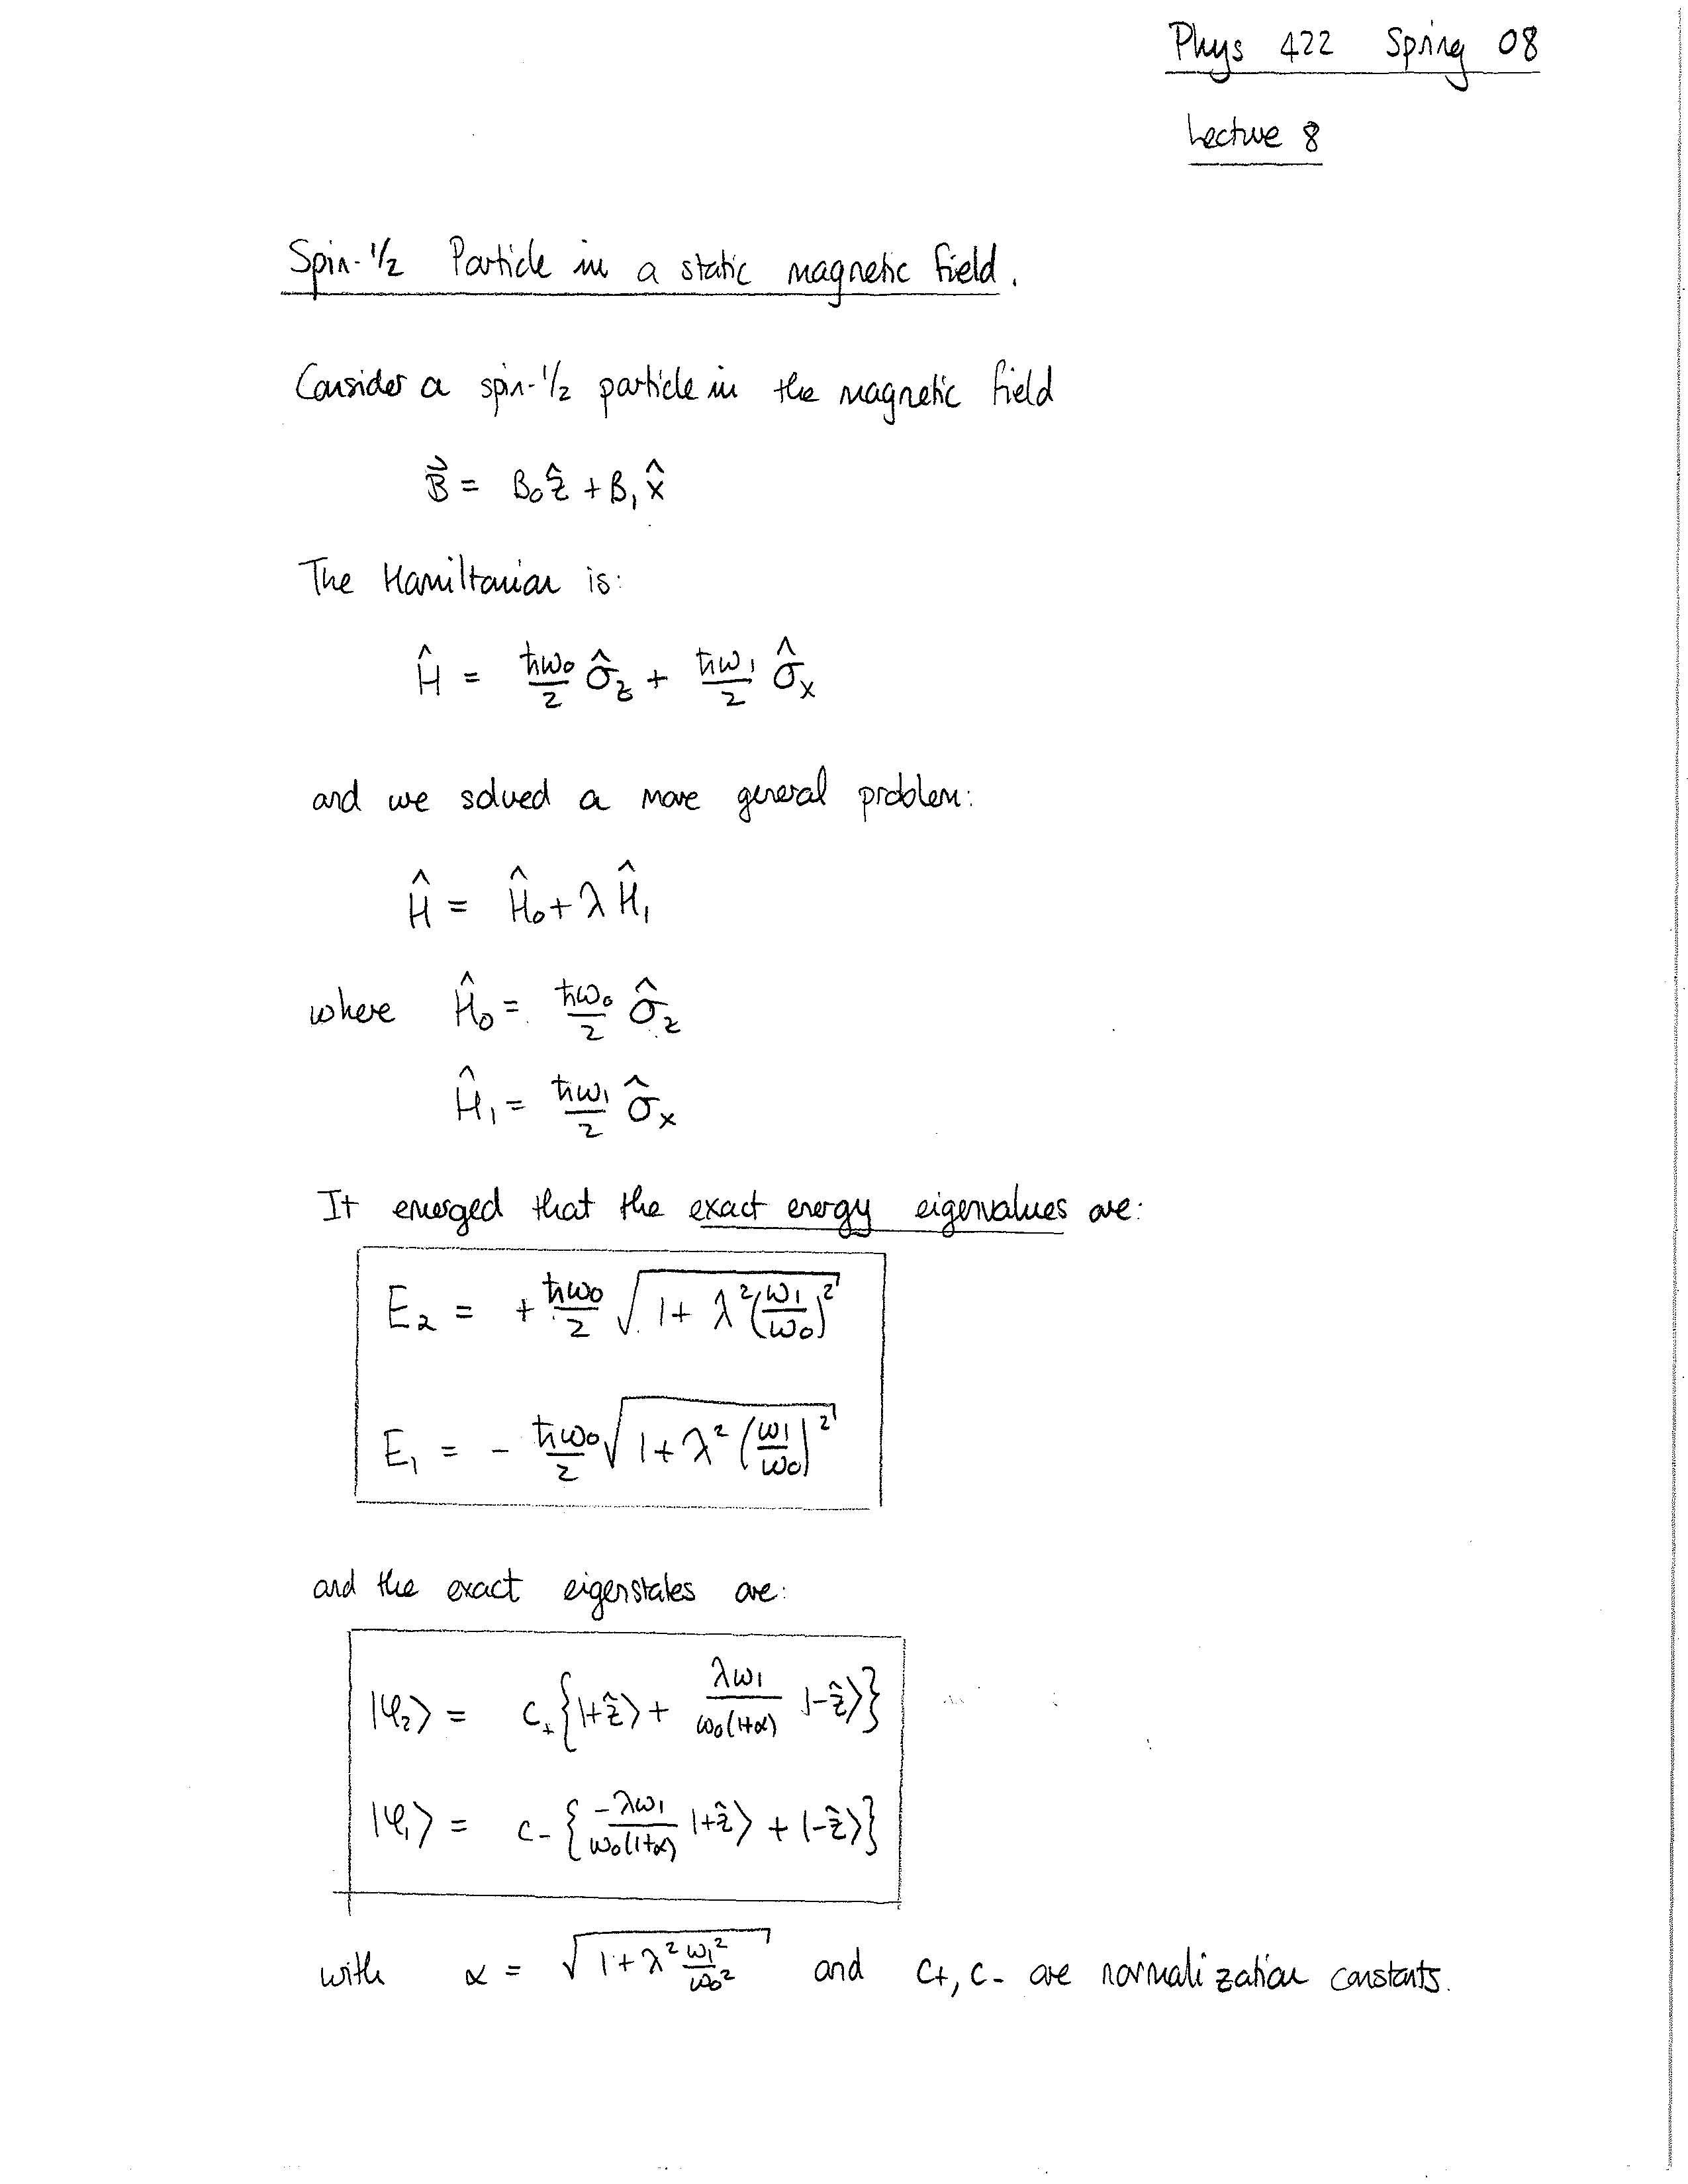 Phys 422 Spring 08
Lecture 8
Spin-1/2 Particle in a static magnetic field.
Consider a spin-1/2 particle in the magnetic field
B⃗ = B₀ẑ + B₁x̂
The Hamiltonian is:
Ĥ = ħω₀/2 σ̂z + ħω₁/2 σ̂x
and we solved a more general problem:
Ĥ = Ĥ₀ + λĤ₁
where Ĥ₀ = ħω₀/2 σ̂z
Ĥ₁ = ħω₁/2 σ̂x
It emerged that the exact energy eigenvalues are:
E₂ = + ħω₀/2 √(1 + λ²(ω₁/ω₀)²)
E₁ = - ħω₀/2 √(1 + λ²(ω₁/ω₀)²)
and the exact eigenstates are:
|φ₂⟩ = c₊{|+ẑ⟩ + λω₁/ω₀(1+α) |-ẑ⟩}
|φ₁⟩ = c₋{-λω₁/ω₀(1+α) |+ẑ⟩ + |-ẑ⟩}
with α = √(1 + λ² ω₁²/ω₀²) and c₊, c₋ are normalization constants.